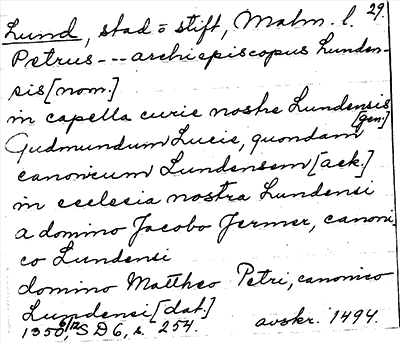 Lund, stad o stift, Malm. l. 29.
Petrus --- archiepiscopus Lunden-
sis [nom.]
in capella curie nostre Lundensis
[gen.]
Gudmundum Lucie, quondam
canonicum Lundensem [ack.]
in ecclesia nostra Lundensi
a domino Jacobo Jermer, canoni-
co Lundensi
domino Mattheo Petri, canonico
Lundensi [dat.]
1350 6/12, SD 6, s. 254. avskr. 1494.